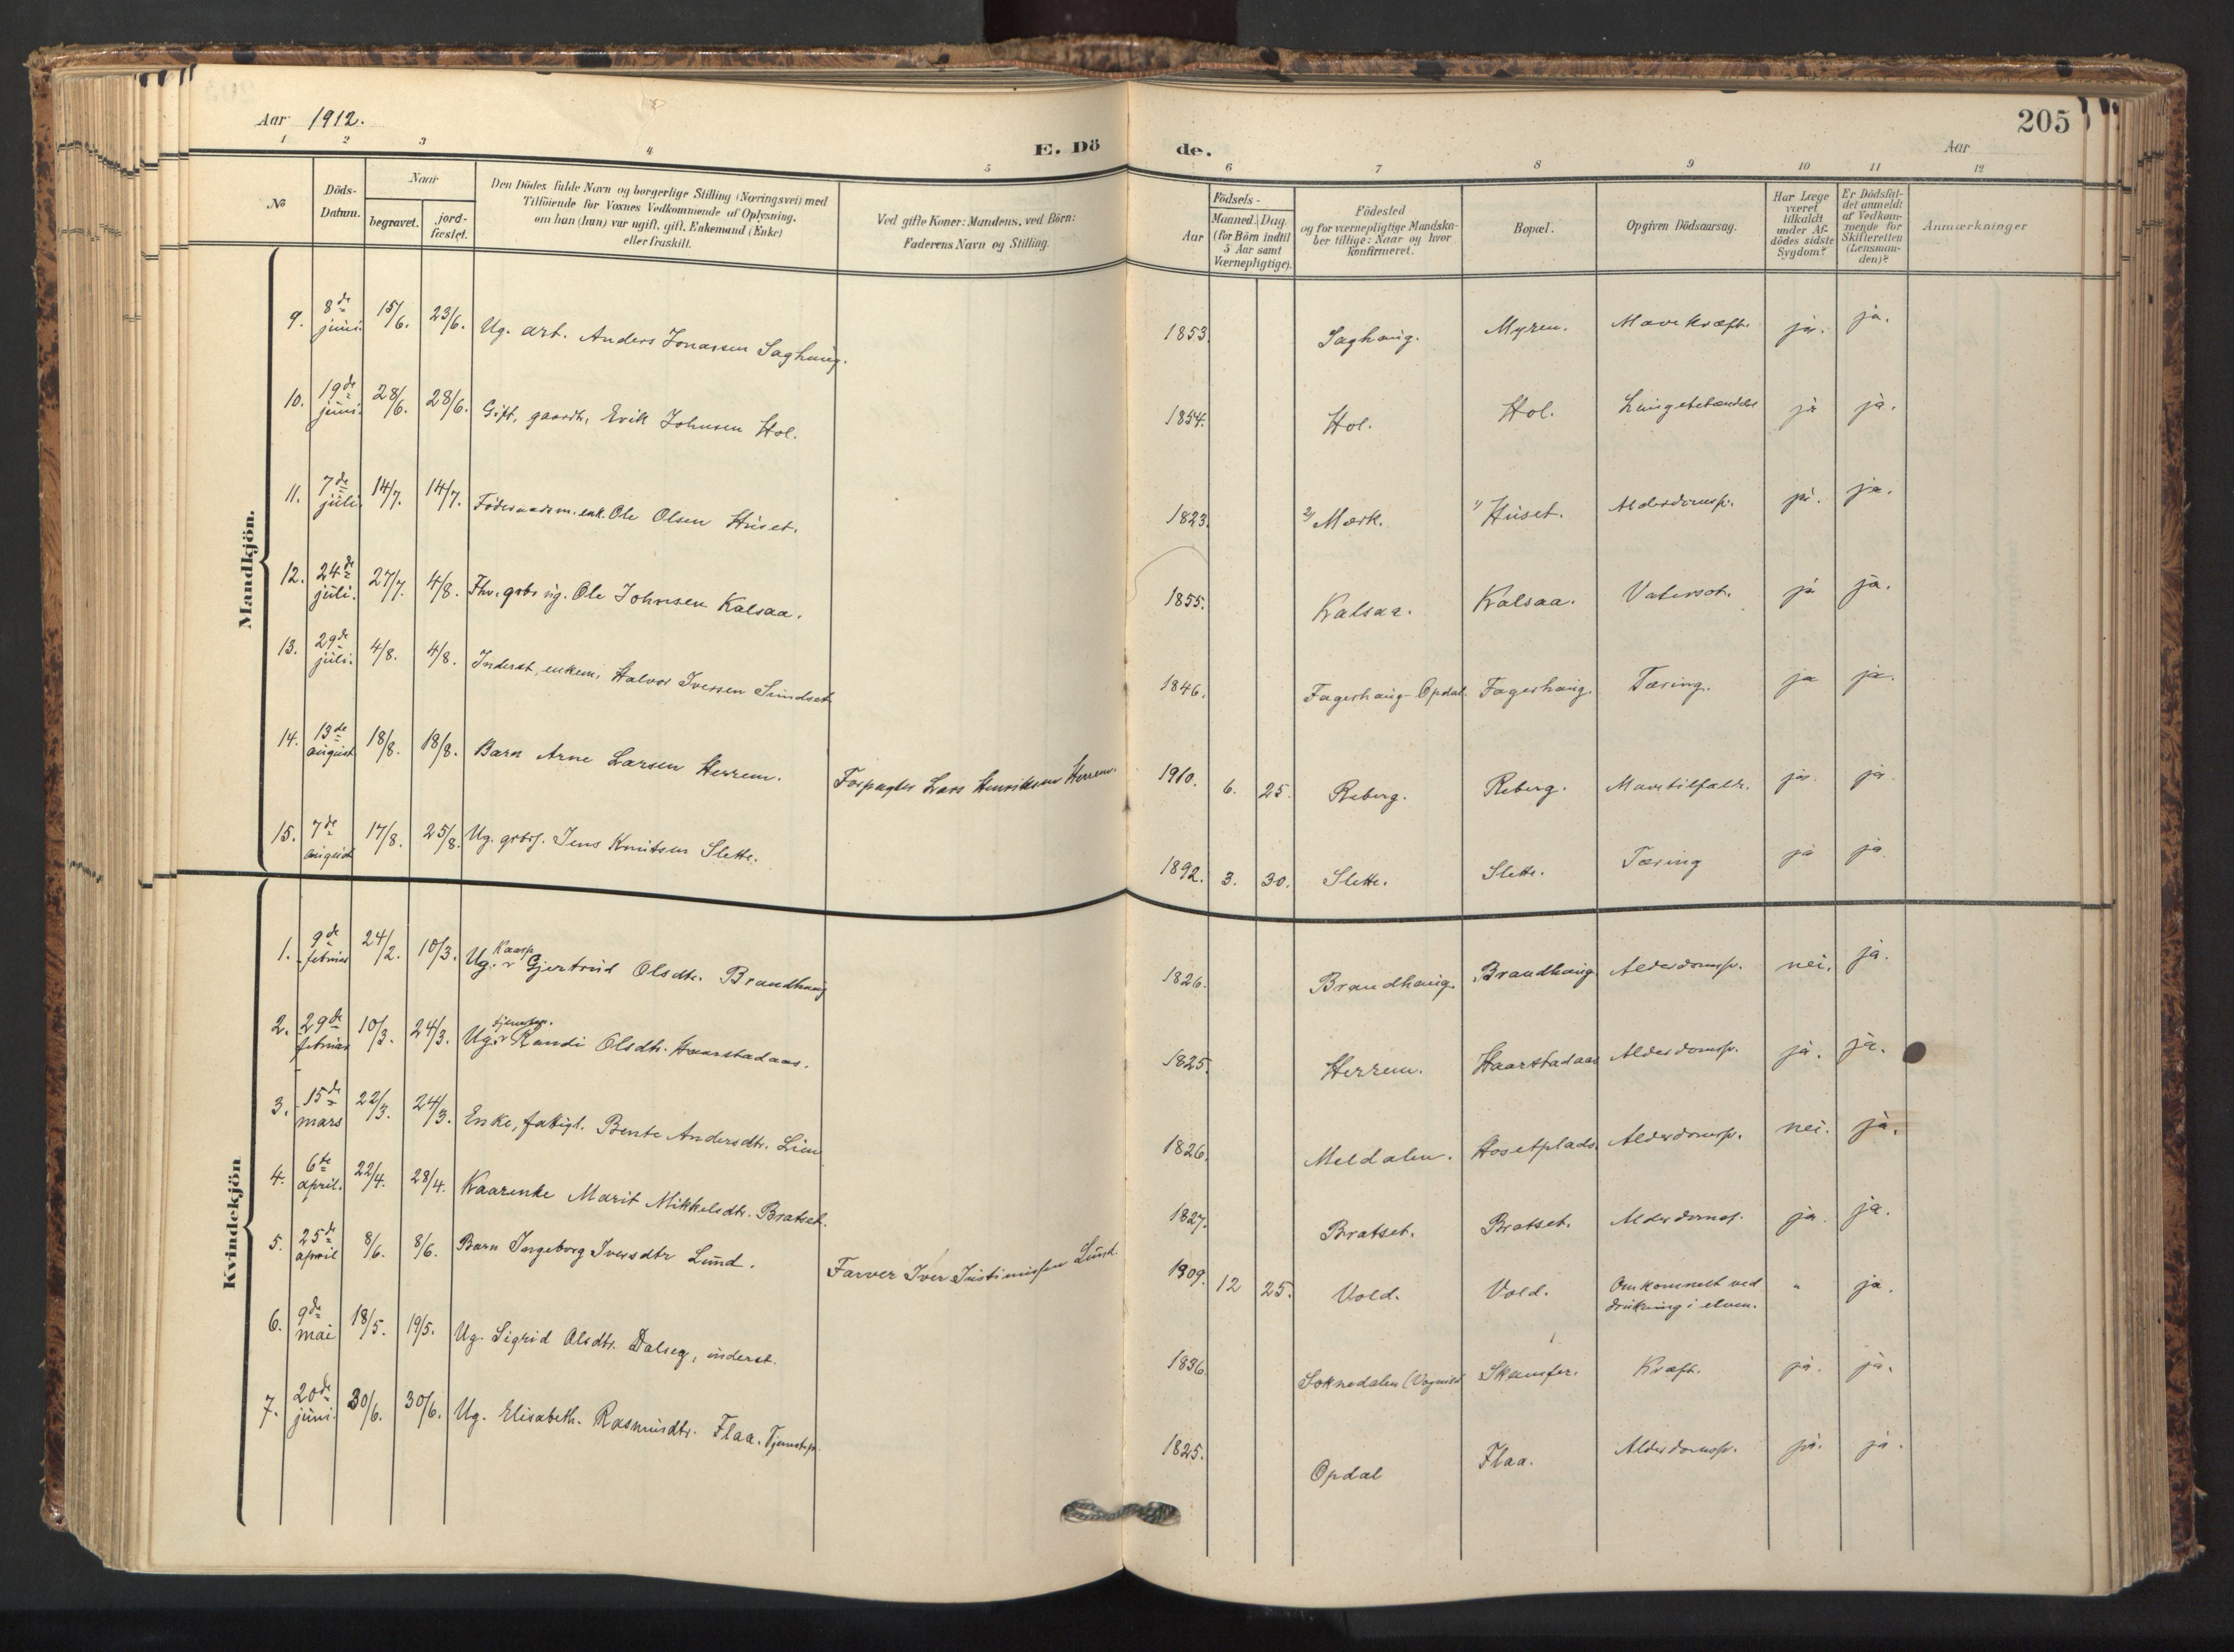 Aar 1912.
205
E. Dö de.
Aar
1 2 3 4 5 6 7 8 9 10 11 12
No
Döds-
Datum.
Naar
begravet.
jord-
fæstet.
Den Dödes fulde Navn og borgerlige Stilling (Næringsvei) med
Tilföiende for Voxnes Vedkommende af Oplysning,
om han (hun) var ugift, gift, Enkemand (Enke)
eller fraskilt.
Ved gifte Koner: Mandens, ved Börn:
Faderens Navn og Stilling.
Födsels-
Aar
Maaned. Dag.
(for Börn indtil
5 Aar samt
Værnepligtige).
Födested
og for værnepligtige Mandska-
ber tillige: Naar og hvor
Konfirmeret.
Bopæl.
Opgiven Dödsaarsag.
Har Læge
været
tilkaldt
under Af-
dödes sidste
Sygdom?
Er Dödsfal-
det anmeldt
af Vedkom-
mende for
Skifteretten
(Lensman-
den)?
Anmærkninger
Mandkjön.
9. 8de juni. 15/6. 23/6. Ug. arb. Anders Jonassen Saghaug. 1853. Saghaug. Myren. Mavekræft. ja. ja.
10. 19de juni. 28/6. 28/6. Gift, gaardb. Erik Johnsen Hol. 1854. Hol. Hol. Lungebetændelse ja ja.
11. 7de juli. 14/7. 14/7. Föderaadsm. enk. Ole Olsen Huset. 1823. 2) Mærk. 1) Huset. Alderdomssv. ja. ja.
12. 24de juli. 27/7. 4/8. Fhv. grbr ug. Ole Johnsen Kalsaa. 1855. Kalsaa. Kalsaa. Vatersot. ja ja.
13. 29de juli. 4/8. 4/8. Inderst, enkem. Halvor Iversen Sundset 1846. Fagerhaug-Opdal. Fagerhaug. Tæring. ja ja.
14. 13de august 18/8. 18/8. Barn Arne Larsen Herrem. Forpagter Lars Henriksen Herrem. 1910. 6. 25. Reberg. Reberg. Mavetilfælde. ja. ja.
15. 7de august 17/8. 25/8. Ug. grbrs. Jens Knutsen Slette. 1892. 3. 30. Slette. Slette. Tæring ja ja.
Kvindekjön
1. 9de februar 24/2. 10/3. Ug. Kaarp. Gjertrud Olsdtr. Brandhaug 1826. Brandhaug. Brandhaug Alderdomssv. nei. ja.
2. 29de februar 10/3. 24/3. Ug. Randi Olsdtr. Haarstadaas. 1825. Herrem. Haarstadaas Alderdomssv. ja. ja.
3. 15de mars 22/3. 24/3. Enke, fattigl. Bente Andersdtr. Lien 1826. Meldalen. Hosetplads. Alderdomssv. nei. ja.
4. 6te april. 22/4. 28/4. Kaarenke Marit Mikkelsdtr. Bratset. 1827. Bratset. Bratset. Alderdomssv. ja. ja.
5. 25de april 8/6. 8/6. Barn Ingeborg Iversdtr Lund. Farver Iver Lund. 1909. 12 25. Vold. Vold. Omkommet ved drukning i elven. " ja.
6. 9de mai 18/5. 19/5. Ug. Sigrid Olsdtr. Dalseg, inderst. 1836. Soknedalen Skamfer. Kræft. ja. ja.
7. 20de juni. 30/6. 30/6. Ug. Elisabeth Rasmusdtr. Flaa. Tjenestep. 1825. Opdal Flaa. Alderdomssv. ja. ja.